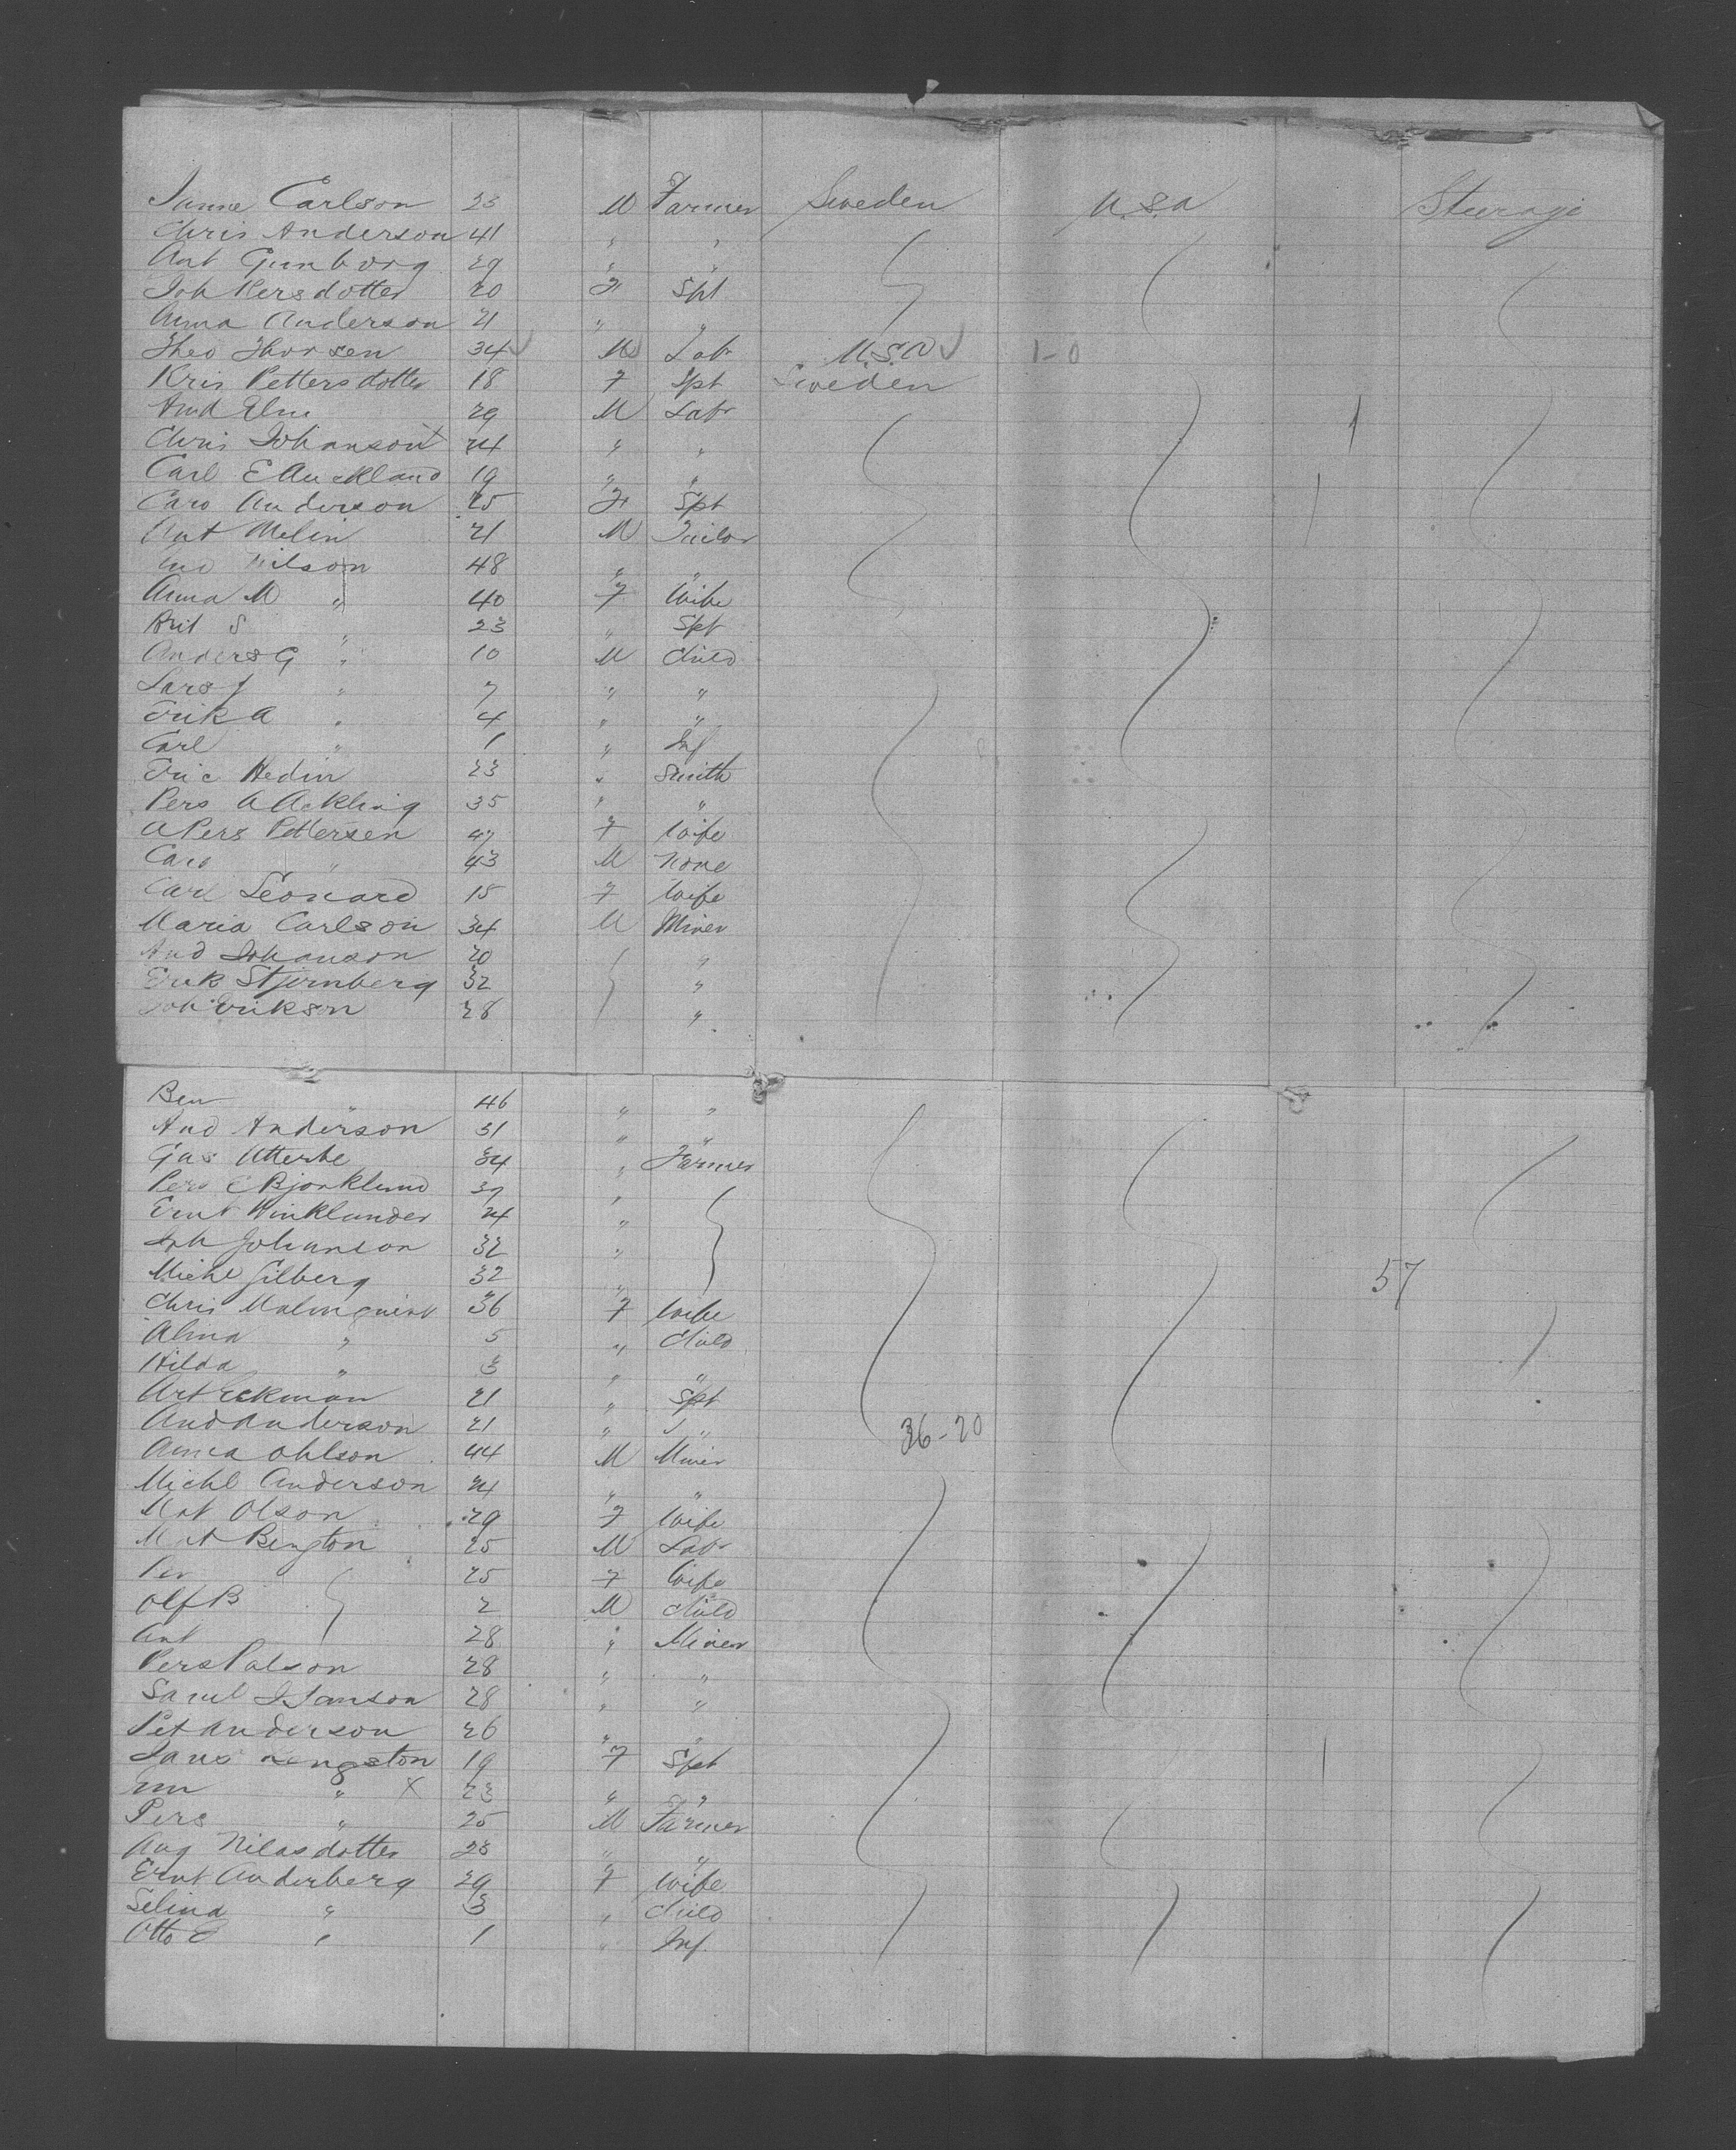 Janne Carlson 23 M Farmer Sweden U.S.A Steerage
Chris Anderson 41 " "
Ant Gunborg 29 " "
Joh Persdotter 20 F Spt
Anna Anderson 21 " "
Theo Thorsen 34 M Labr U.S.A 1-0
Kris Pettersdotter 18 F Spt Sweden
And Elm 29 M Labr 1
Chris Johanson x 24 " "
Carl E Auckland 19 " "
Caro Anderson 25 F Spt
Aut Melin 21 M Tailor
Nilson 48 " "
Anna M " 40 F Wife
Brit S " 23 " Spt
Anders G " 10 M Child
Lars J " 7 " "
Erik A " 4 " "
Carl " 1 " Inf
Eric Hedin 23 " Smith
Pers A Ackling 35 " "
A Pers Pettersen 47 F Wife
Caro " 43 M None
Carl Leonard 15 F Wife
Maria Carlson 34 M Miner
And Johanson 20 "
Erik Stjernberg 32 "
Joh Erikson 28 "
Ben " 46 " "
And Anderson 31 " "
Gus Utterbe 34 " Farmer
Pers E Bjorklund 39 "
Ernt Winklander 24 "
Joh Johanson 32 "
Michl Gilberg 32 " 57
Chris Malmquist 36 F Wife
Alma " 5 " Child
Hilda " 3 " "
Art Eckman 21 " Spt
And Anderson 21 " " 36-20
Anna Ohlson 44 M Miner
Michl Anderson 24 " "
Mat Olson 29 F Wife
Mat Bengton 25 M Labr
Per 25 F Wife
Olf B 2 M Child
Ant 28 " Miner
Pers Palson 28 " "
Saml J Janson 28 " "
Pet Anderson 26 " "
Lars Lengston 19 F Spt
" x 23 " "
Pers " 25 M Farmer
Aug Nilasdotter 23 " "
Ernt Anderberg 29 F Wife
Selina " 3 " Child
Otto E " 1 " Inf.